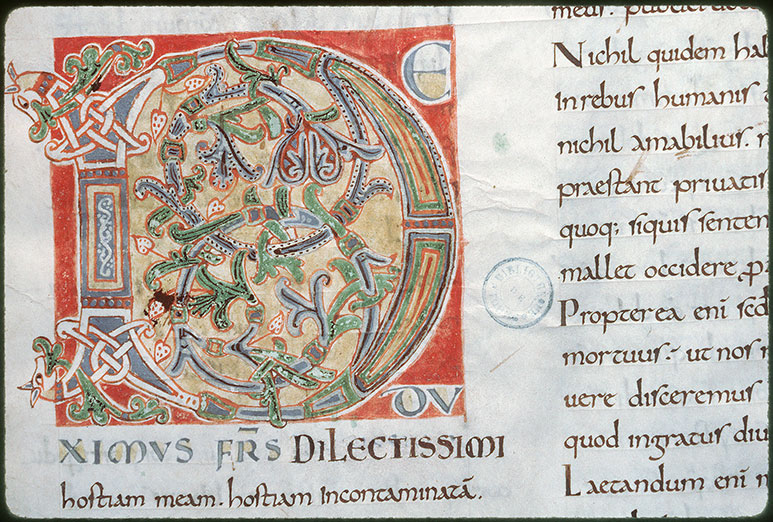 DE
DV
XIMVS FR̄S DILECTISSIMI
hostiam meam. hostiam incontaminatā.
Nichil quidem hab
in rebus humanis
nichil amabilius.
praestant privatis
quoq; siquis senten
mallet occidere
Propterea eni
mortuus. ut nos
uere disceremus
quod ingratus diu
Laetandum eni